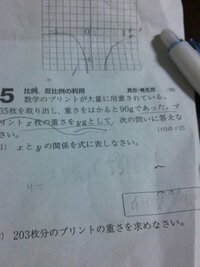 5 比例，反比例の利用 見方・考え方 /20
数学のプリントが大量に用意されている。
35枚を取り出し，重さをはかると90gであった。プ
リント x 枚の重さを yg として，次の問いに答えな
さい。 [10点×2]
) x と y の関係を式に表しなさい。
y=
) 203枚分のプリントの重さを求めなさい。